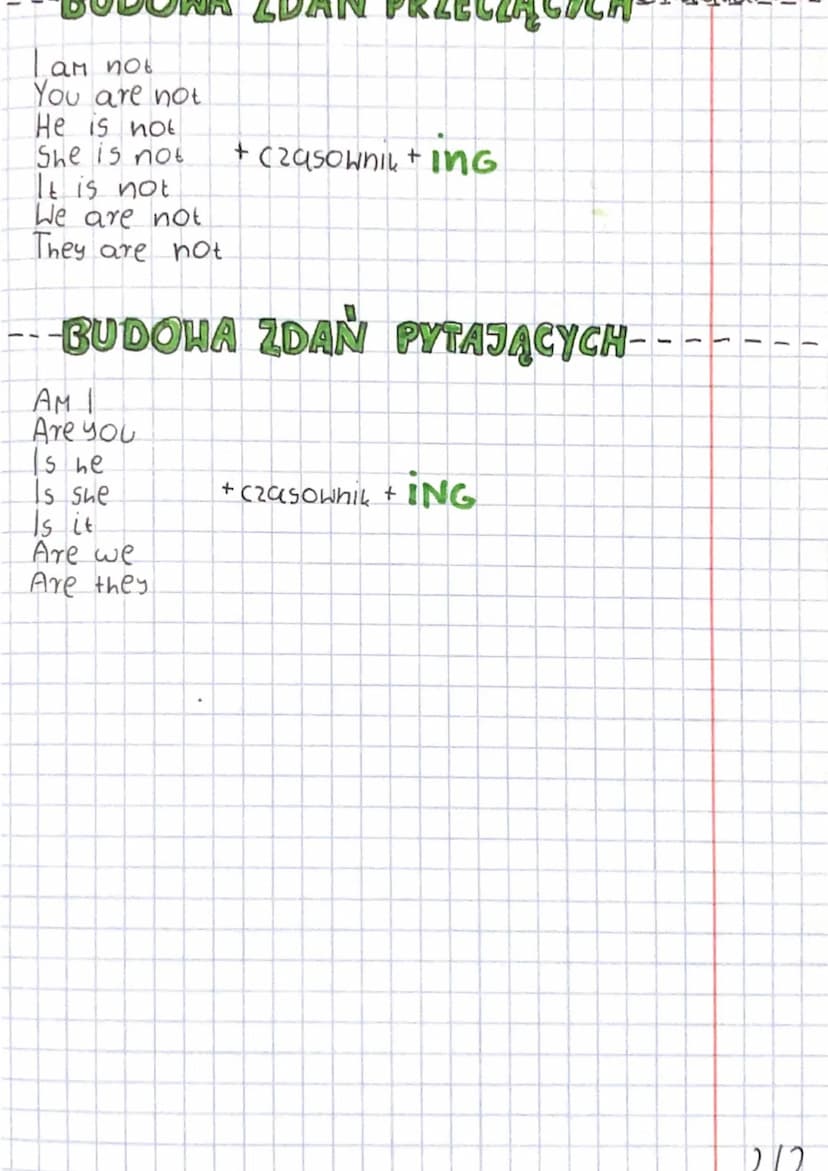 ---BUDOWA ZDAŃ PRZECZĄCYCH-------
I am not
You are not
He is not
She is not + czasownik + ing
It is not
We are not
They are not
---BUDOWA ZDAŃ PYTAJĄCYCH-------
AM I
Are you
Is he
Is she + czasownik + ING
Is it
Are we
Are they
2/2